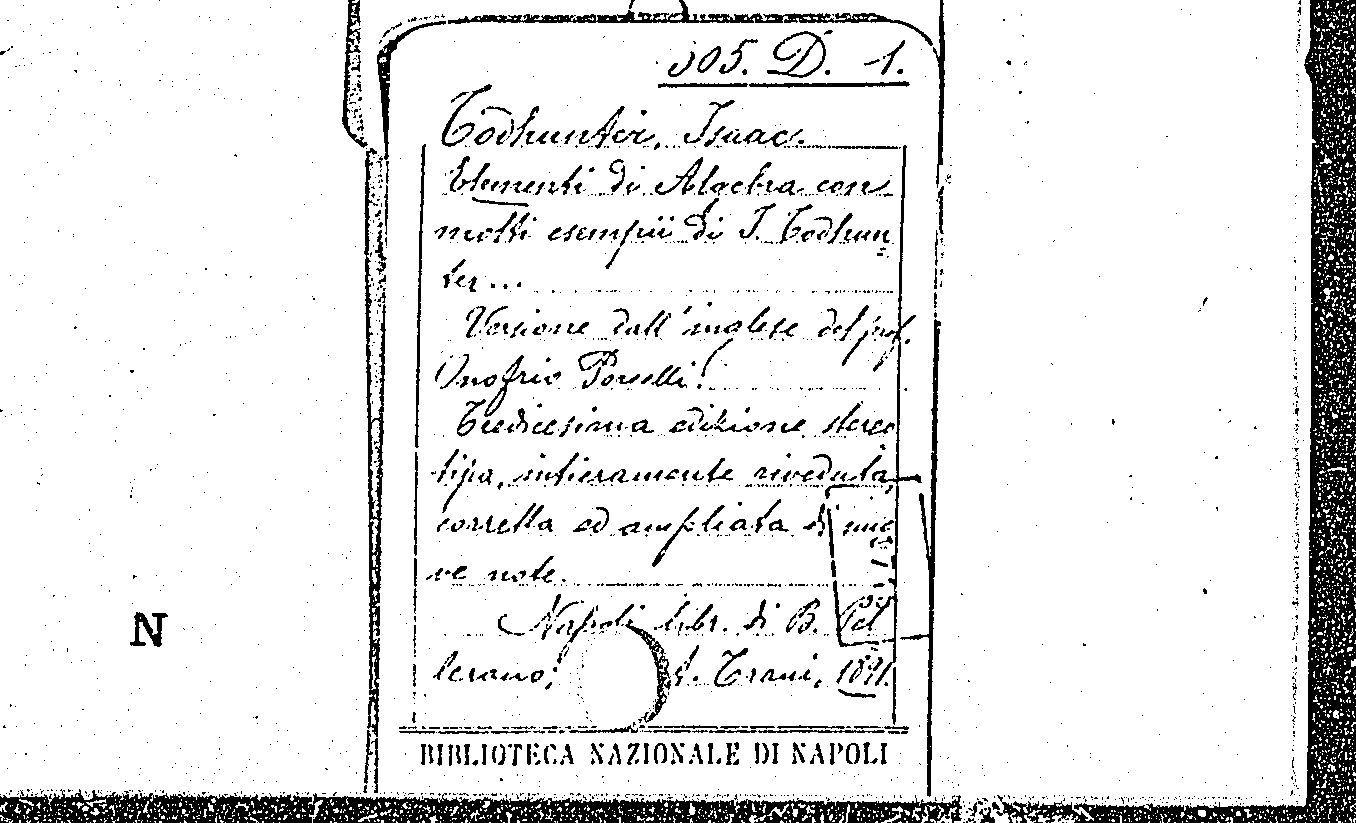 305. D. 1.
Todhunter, Isaac.
Elementi di Algebra con
molti esempii di I. Todhun
ter...
Versione dall'inglese del prof.
Onofrio Porzelli!
Tredicesima edizione stereo
tipa, intieramente riveduta,
corretta ed ampliata di nuo
ve note.
Napoli libr. di B. Pel
lerano; t. Trani, 1891.
BIBLIOTECA NAZIONALE DI NAPOLI
N